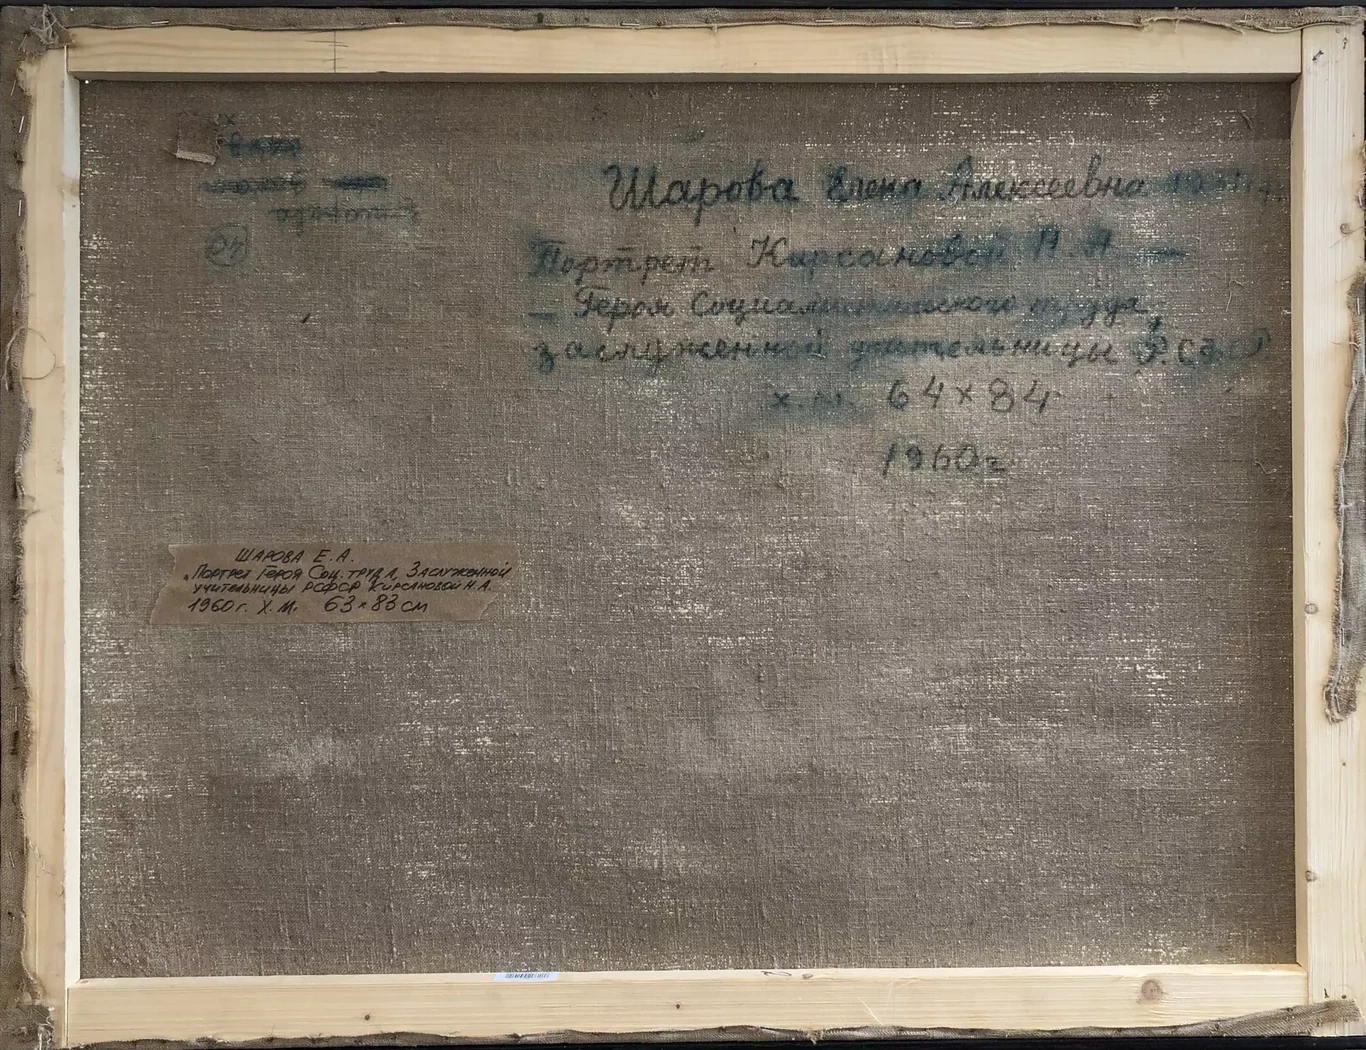 Шарова Елена Алексеевна
Портрет Кирсановой Н. А. —
— Героя Социалистического труда,
заслуженной учительницы РСФСР
х.м. 64 х 84
1960г
ШАРОВА Е. А.
"ПОРТРЕТ ГЕРОЯ СОЦ. ТРУДА, ЗАСЛУЖЕННОЙ
УЧИТЕЛЬНИЦЫ РСФСР КИРСАНОВОЙ Н. А.
1960 г. Х. М. 63 × 83 СМ